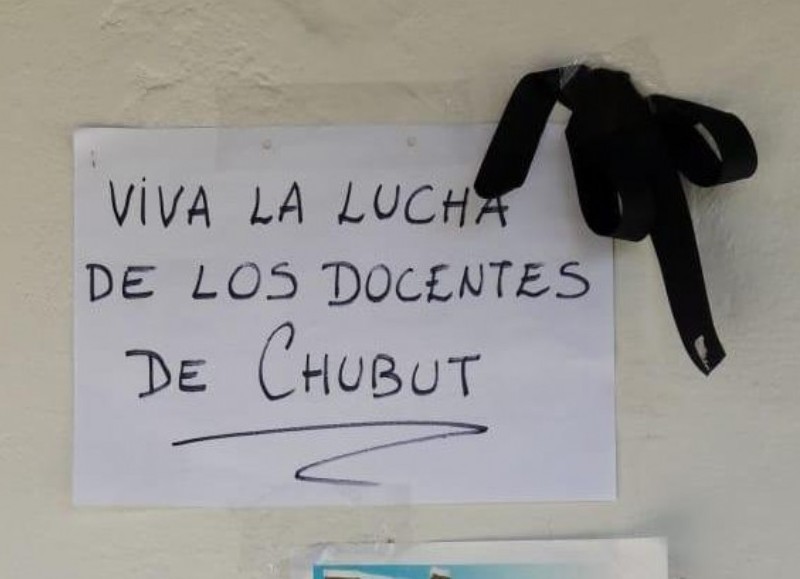 ViVA LA LUCHA
DE LOS DOCENTES
DE CHUBUT